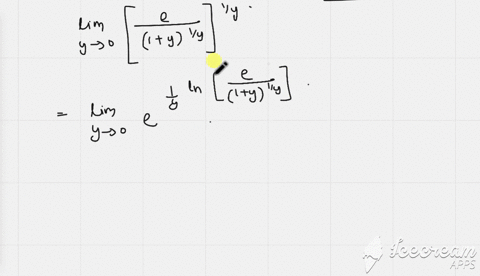 lim y→0 [ e / (1+y)^1/y ]^1/y .
= lim y→0 e^ 1/y ln [ e / (1+y)^1/y ] .
Icecream
APPS